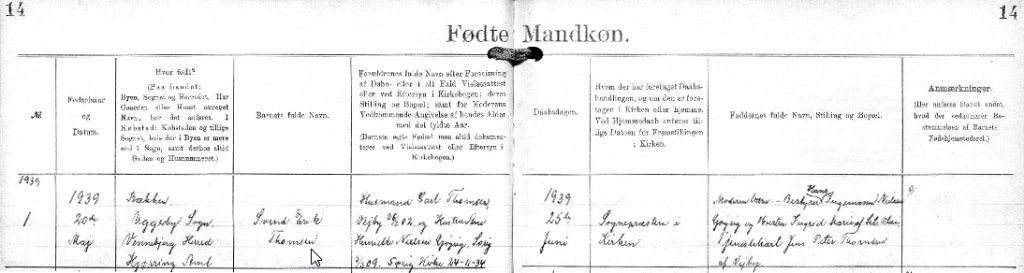 14
14
Fødte Mandkøn.
№
Fødselsaar
og
Datum.
Hvor født?
(Paa Landet:
Byen, Sognet og Herredet. Har
Gaarden eller Huset særeget
Navn, bør det anføres. I
Købstad: Købstaden og tillige
Sognet, hvis der i Byen er mere
end 1 Sogn, samt derhos altid
Gaden og Husnummeret.)
Barnets fulde Navn.
Forældrenes fulde Navn efter Forevisning
af Daabs- eller i alt Fald Vielsesattest
eller ved Eftersyn i Kirkebogen; deres
Stilling og Bopæl; samt for Moderens
Vedkommende Angivelse af hendes Alder
med det fyldte Aar.
(Barnets ægte Fødsel maa altid dokumen-
teres ved Vielsesattest eller Eftersyn i
Kirkebogen.)
Daabsdagen.
Hvem der har foretaget Daabs-
handlingen, og om den er fore-
taget i Kirken eller hjemme.
Ved Hjemmedaab anføres til-
lige Datoen for Fremstillingen
i Kirken.
Faddernes fulde Navn, Stilling og Bopæl.
Anmærkninger.
(Her anføres blandt andet,
hvad der vedkommer Be-
stemmelsen af Barnets
Fødehjemsteforet.)
1939
1
1939
20de
Maj
Bækken
Uggerby Sogn
Vennebjerg Herred
Hjørring Amt
Svend Erik
Thomsen
Husmand Carl Thomsen
Vejby 02, og Hustru
Nielsen
09. Kirke 24-11-34
1939
25de
Juni
Sognepræsten i
Kirken
Moderen bar. – Bestyrer Hans Ingemann Nielsen
og Hustru Ingrid
Tjenestekarl Jens Peter Thomsen
af Vejby.